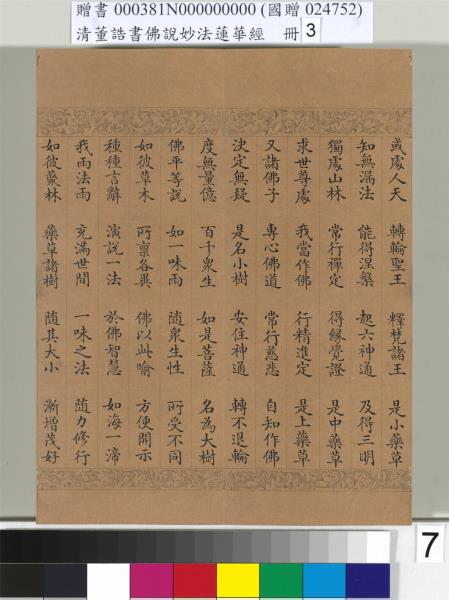 贈書 000381N000000000 (國贈 024752)
清董誥書佛說妙法蓮華經 冊 3
或處人天 轉輪聖王 釋梵諸王 是小藥草
知無漏法 能得涅槃 起六神通 及得三明
獨處山林 常行禪定 得緣覺證 是中藥草
求世尊處 我當作佛 行精進定 是上藥草
又諸佛子 專心佛道 常行慈悲 自知作佛
決定無疑 是名小樹 安住神通 轉不退輪
度無量億 百千眾生 如是菩薩 名為大樹
佛平等說 如一味雨 隨眾生性 所受不同
如彼草木 所稟各異 佛以此喻 方便開示
種種言辭 演說一法 於佛智慧 如海一渧
我雨法雨 充滿世間 一味之法 隨力修行
如彼藂林 藥草諸樹 隨其大小 漸增茂好
7